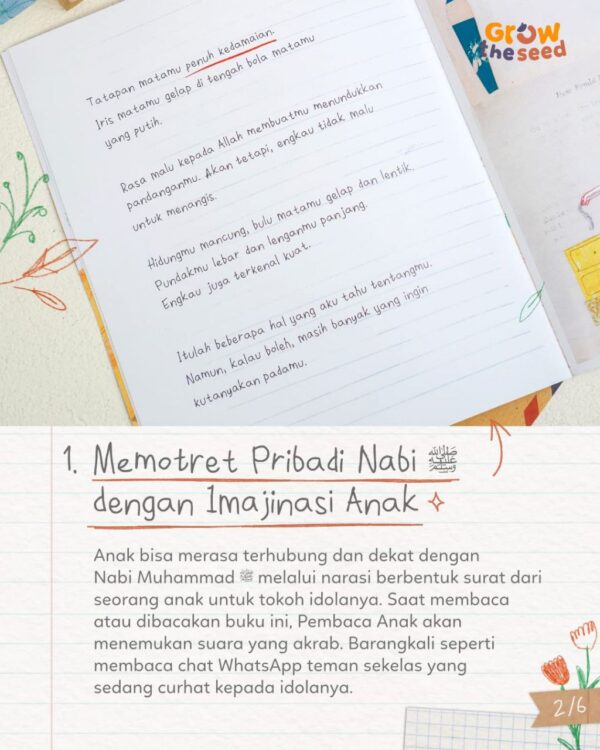 GROW
the seed
Tatapan matamu penuh kedamaian.
Iris matamu gelap di tengah bola matamu
yang putih.
Rasa malu kepada Allah membuatmu menundukkan
pandanganmu. Akan tetapi, engkau tidak malu
untuk menangis.
Hidungmu mancung, bulu matamu gelap dan lentik.
Pundakmu lebar dan lenganmu panjang.
Engkau juga terkenal kuat.
Itulah beberapa hal yang aku tahu tentangmu.
Namun, kalau boleh, masih banyak yang ingin
kutanyakan padamu.
1. Memotret Pribadi Nabi ﷺ
dengan Imajinasi Anak
Anak bisa merasa terhubung dan dekat dengan
Nabi Muhammad ﷺ melalui narasi berbentuk surat dari
seorang anak untuk tokoh idolanya. Saat membaca
atau dibacakan buku ini, Pembaca Anak akan
menemukan suara yang akrab. Barangkali seperti
membaca chat WhatsApp teman sekelas yang
sedang curhat kepada idolanya.
2/6